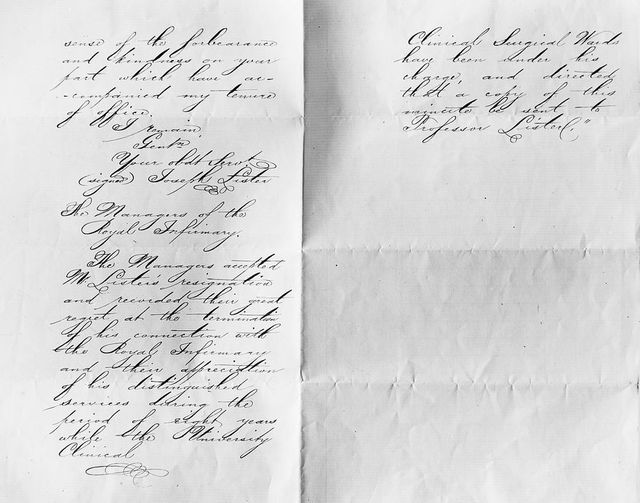 sense of the forbearance
and kindness on your
part which have ac-
-companied my tenure
of office.
I remain,
Gentn
Your obdt Servt
(signed) Joseph Lister
The Managers of the
Royal Infirmary.
The Managers accepted
Mr Listers resignation
and recorded their great
regret at the termination
of his connection with
the Royal Infirmary
and their appreciation
of his distinguished
services during the
period of eight years
while the University
Clinical
Clinical Surgical Wards
have been under his
charge, and directed
that a copy of this
minute be sent to
Professor Lister."